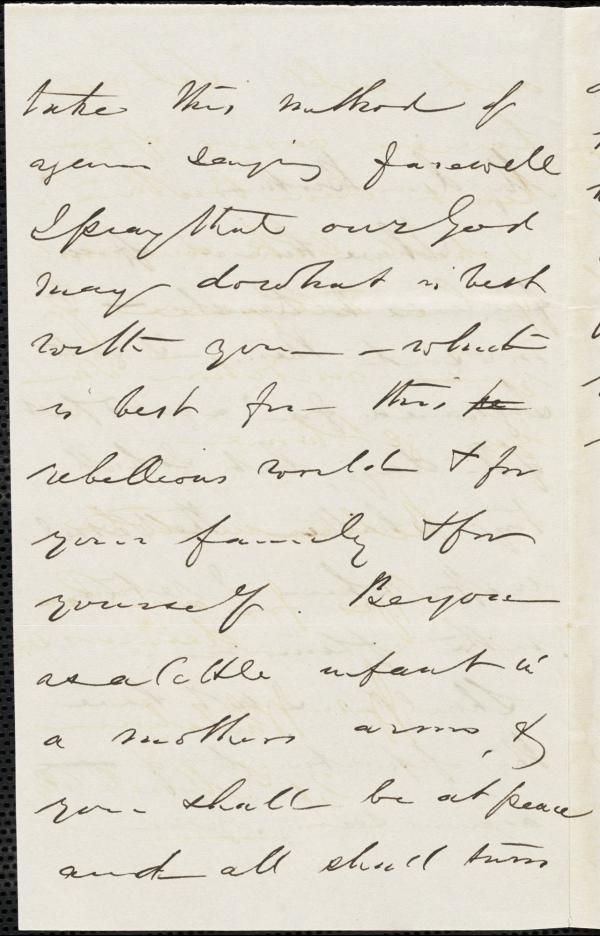 take this method of
again saying farewell
I pray that our God
may do what is best
with you — what
is best for this
rebellious world & for
your family & for
yourself. Be you
as a little infant in
a mothers arms, &
you shall be at peace
and all shall turn